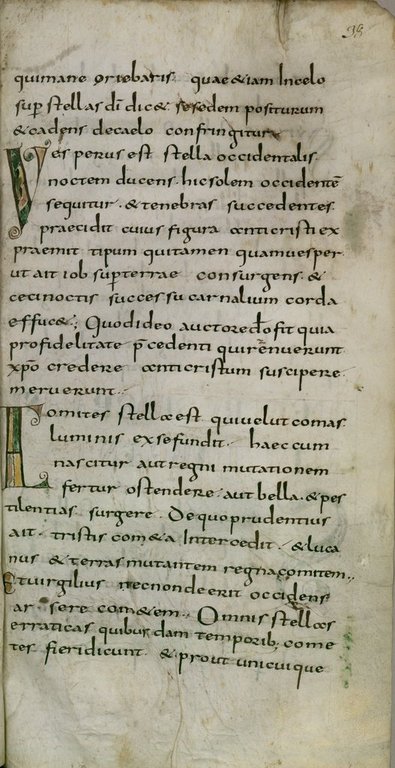 98
quimane oriebaris quae &iam Incelo
sup̄ stellas dī dic& se sedem positurum
& cadens decaelo confringitur
Ves perus est stella occidentalis
noctem ducens. hic solem occidentē
sequitur. & tenebras succedentes
praecidit cuius figura anticristi ex
praemit tipum qui tamen quam uesper
ut ait iob sup̄ terrae consurgens. &
ceci noctis successu carnalium corda
effuc&; Quod ideo auctore dō fit quia
pro fidelitate p̄cedenti qui rēnuerunt
xp̄o credere anticristum suscipere
meruerunt.
Comites stella est qui uelut comas
luminis ex se fundit. haec cum
nascitur aut regni mutationem
fertur ostendere. aut bella. & pes
tilentias surgere. De quo prudentius
ait. tristis com&a Intercedit. & luca
nus & terras mutantem regna comitem.
Et uirgilius nec non deerit occidens
ar sere com&em. Omnis stellas
erraticas quibus dam temporib; come
tes fieri dicunt. & prout unicuique